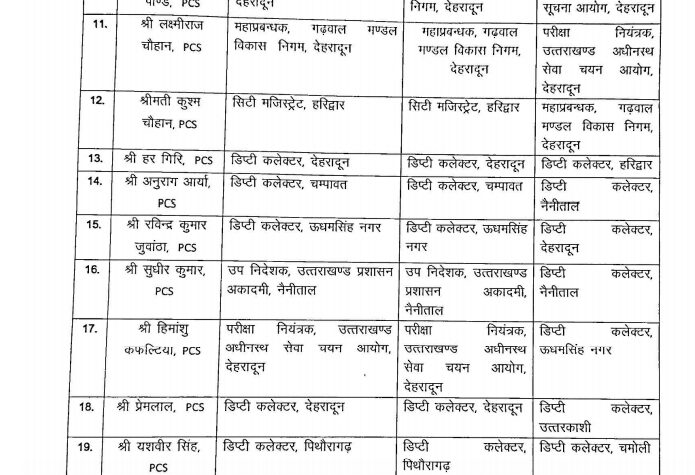 पाण्डे, PCS देहरादून निगम, देहरादून सूचना आयोग, देहरादून
11. श्री लक्ष्मीराज महाप्रबन्धक, गढ़वाल मण्डल महाप्रबन्धक, गढ़वाल परीक्षा नियंत्रक,
चौहान, PCS विकास निगम, देहरादून मण्डल विकास निगम, उत्तराखण्ड अधीनस्थ
देहरादून सेवा चयन आयोग,
देहरादून
12. श्रीमती कुश्म सिटी मजिस्ट्रेट, हरिद्वार सिटी मजिस्ट्रेट, हरिद्वार महाप्रबन्धक, गढ़वाल
चौहान, PCS मण्डल विकास निगम,
देहरादून
13. श्री हर गिरि, PCS डिप्टी कलेक्टर, देहरादून डिप्टी कलेक्टर, देहरादून डिप्टी कलेक्टर, हरिद्वार
14. श्री अनुराग आर्या, डिप्टी कलेक्टर, चम्पावत डिप्टी कलेक्टर, चम्पावत डिप्टी कलेक्टर,
PCS नैनीताल
15. श्री रविन्द्र कुमार डिप्टी कलेक्टर, ऊधमसिंह नगर डिप्टी कलेक्टर, ऊधमसिंह डिप्टी कलेक्टर,
जुवांठा, PCS नगर देहरादून
16. श्री सुधीर कुमार, उप निदेशक, उत्तराखण्ड प्रशासन उप निदेशक, उत्तराखण्ड डिप्टी कलेक्टर,
PCS अकादमी, नैनीताल प्रशासन अकादमी, नैनीताल
नैनीताल
17. श्री हिमांशु परीक्षा नियंत्रक, उत्तराखण्ड परीक्षा नियंत्रक, डिप्टी कलेक्टर,
कफल्टिया, PCS अधीनस्थ सेवा चयन आयोग, उत्तराखण्ड अधीनस्थ ऊधमसिंह नगर
देहरादून सेवा चयन आयोग,
देहरादून
18. श्री प्रेमलाल, PCS डिप्टी कलेक्टर, देहरादून डिप्टी कलेक्टर, देहरादून डिप्टी कलेक्टर,
उत्तरकाशी
19. श्री यशवीर सिंह, डिप्टी कलेक्टर, पिथौरागढ़ डिप्टी कलेक्टर, डिप्टी कलेक्टर, चमोली
PCS पिथौरागढ़